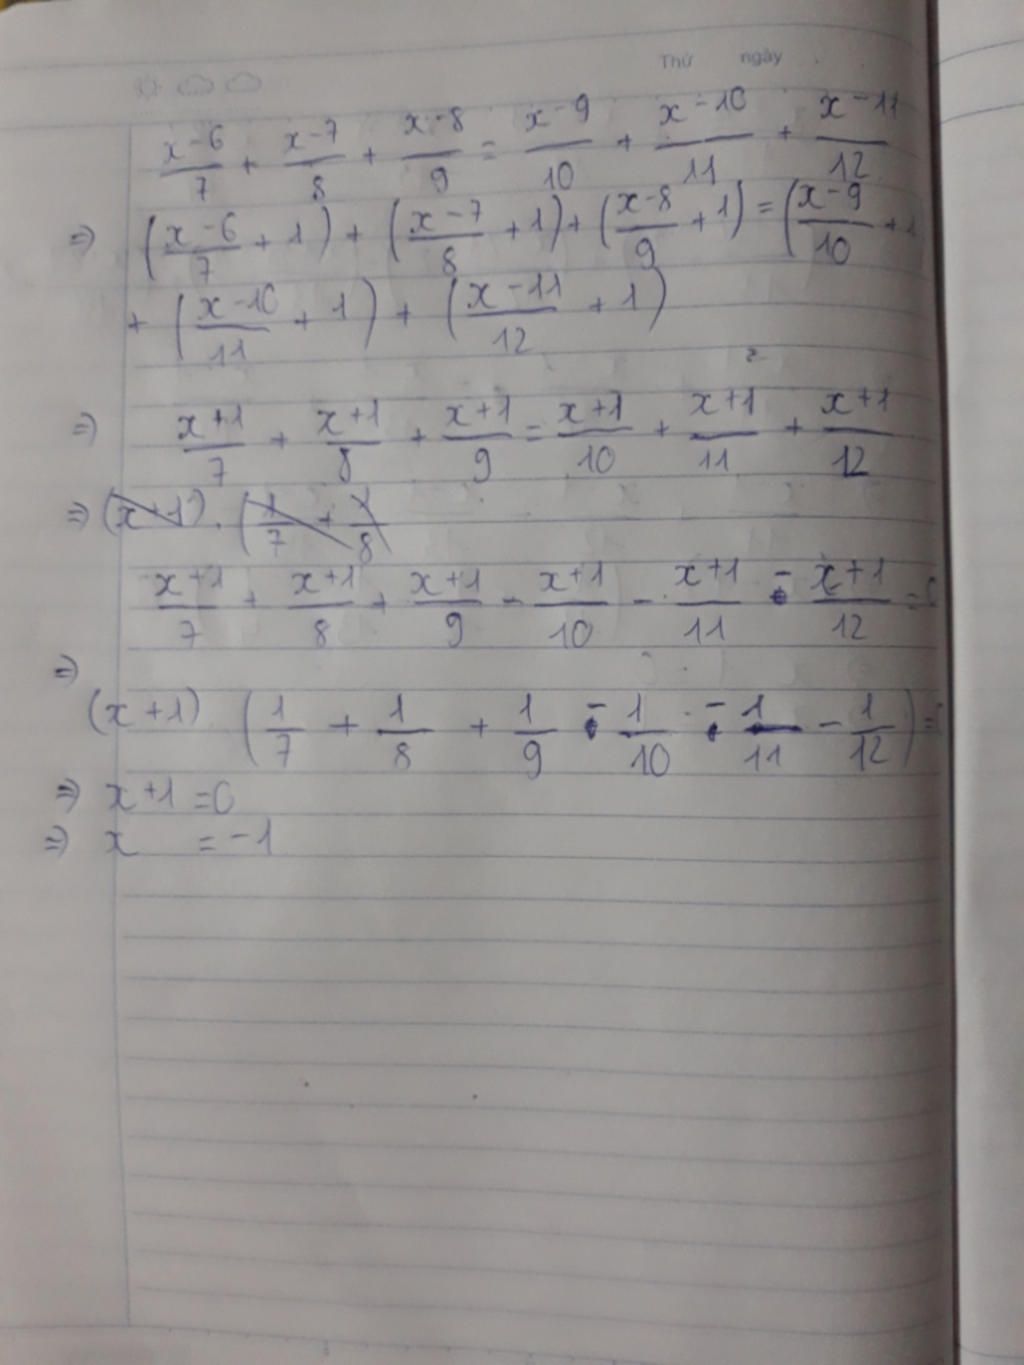 Thứ ngày
x-6/7 + x-7/8 + x-8/9 = x-9/10 + x-10/11 + x-11/12
⇒ (x-6/7 + 1) + (x-7/8 + 1) + (x-8/9 + 1) = (x-9/10 + 1
+ (x-10/11 + 1) + (x-11/12 + 1)
⇒ x+1/7 + x+1/8 + x+1/9 = x+1/10 + x+1/11 + x+1/12
⇒ (x+1) . (1/7 + 1/8
x+1/7 + x+1/8 + x+1/9 - x+1/10 - x+1/11 - x+1/12 = 0
⇒
(x+1) (1/7 + 1/8 + 1/9 - 1/10 - 1/11 - 1/12) = 0
⇒ x+1 = 0
⇒ x = -1